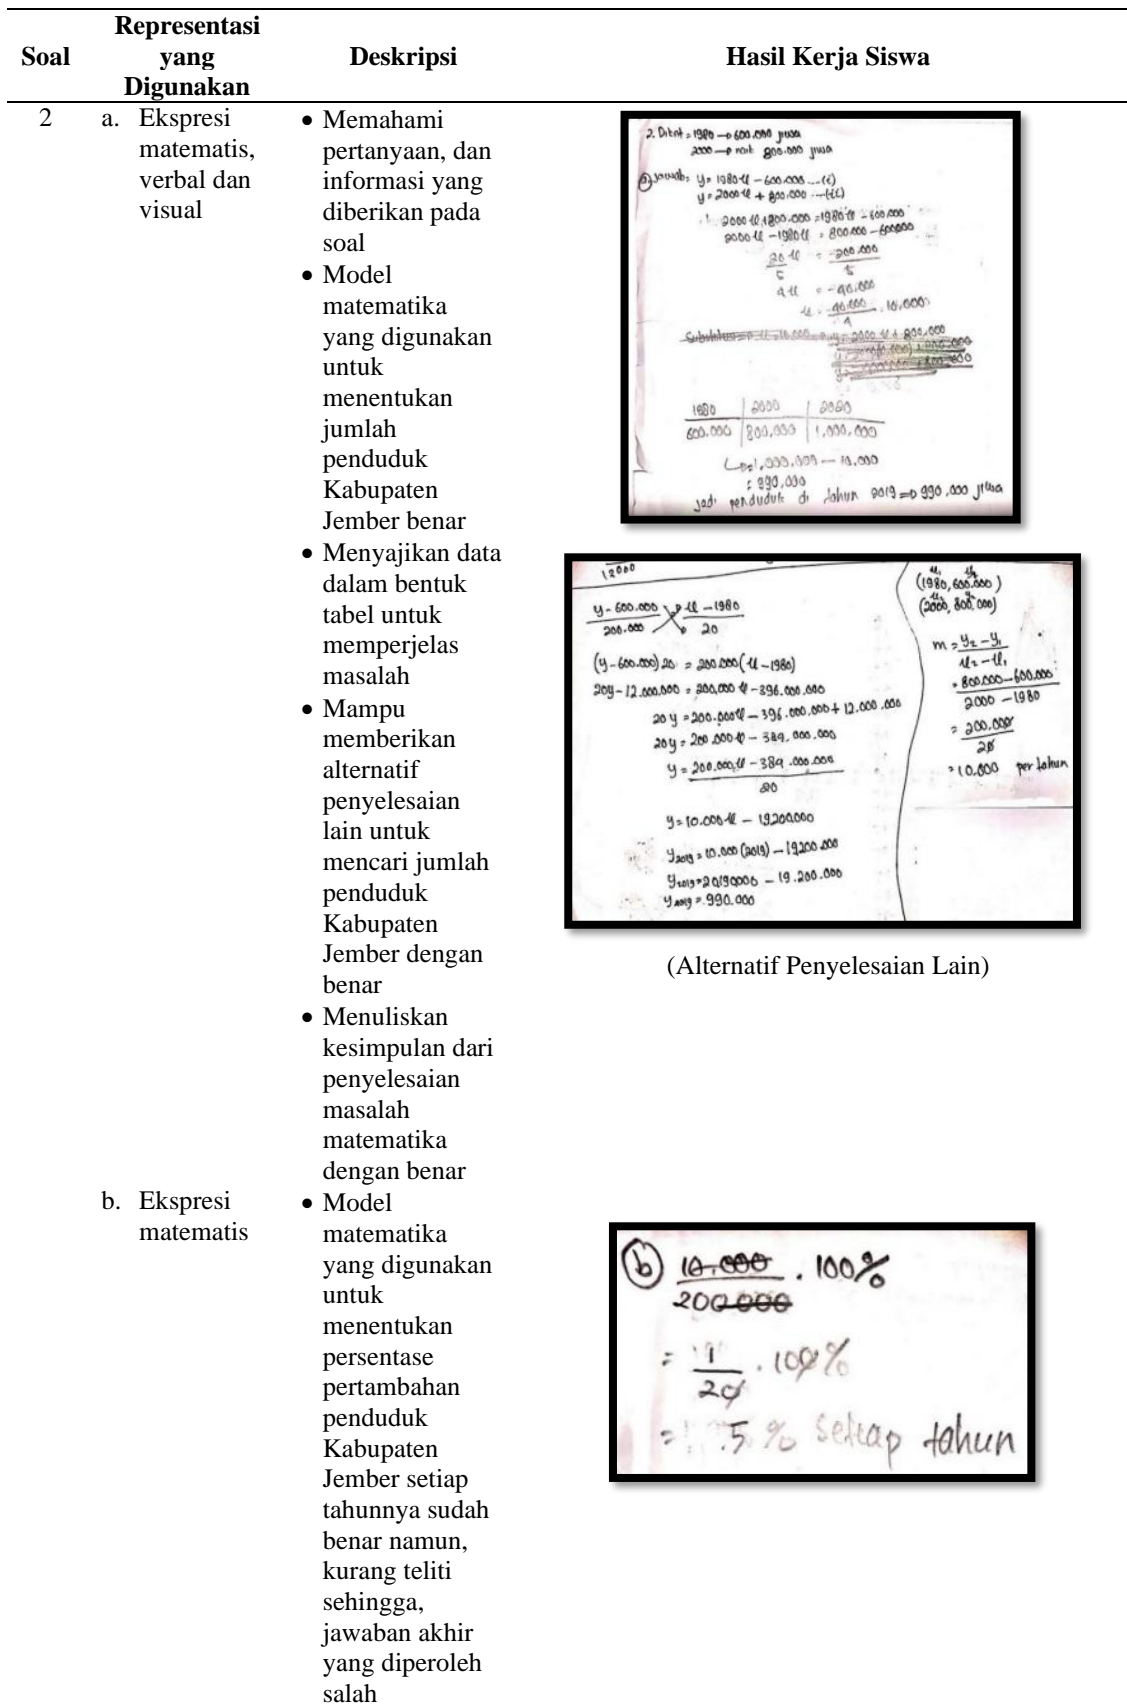 Soal
Representasi
yang
Digunakan
Deskripsi
Hasil Kerja Siswa
2
a. Ekspresi
matematis,
verbal dan
visual
• Memahami
pertanyaan, dan
informasi yang
diberikan pada
soal
• Model
matematika
yang digunakan
untuk
menentukan
jumlah
penduduk
Kabupaten
Jember benar
• Menyajikan data
dalam bentuk
tabel untuk
memperjelas
masalah
• Mampu
memberikan
alternatif
penyelesaian
lain untuk
mencari jumlah
penduduk
Kabupaten
Jember dengan
benar
• Menuliskan
kesimpulan dari
penyelesaian
masalah
matematika
dengan benar
2. Diket = 1980 → 600.000 jiwa
2000 → naik 800.000 jiwa
a) jawab: y = 1980x - 600.000 ...(i)
y = 2000x + 800.000 ...(ii)
2000x + 800.000 = 1980x - 600.000
2000x - 1980x = 800.000 - 600000
20x = -200.000
5 5
4x = -40.000
x = -40.000 . 10.000
4
1980 | 2000 | 2020
600.000 | 800,000 | 1,000,000
→ = 1,000,000 - 10.000
= 990,000
jadi penduduk di tahun 2019 ⇒ 990.000 jiwa
12000
y - 600.000 = x - 1980
200.000 20
(y - 600.000) 20 = 200.000 (x - 1980)
20y - 12.000.000 = 200,000x - 396.000.000
20y = 200.000x - 396.000.000 + 12.000.000
20y = 200.000x - 384.000.000
y = 200.000x - 384.000.000
20
y = 10.000x - 19.200.000
y2019 = 10.000 (2019) - 19.200.000
y2019 = 20190000 - 19.200.000
y2019 = 990.000
x₁ y₁
(1980, 600.000)
x₂ y₂
(2000, 800,000)
m = y₂ - y₁
x₂ - x₁
= 800.000 - 600.000
2000 - 1980
= 200.000
20
= 10.000 per tahun
(Alternatif Penyelesaian Lain)
b. Ekspresi
matematis
• Model
matematika
yang digunakan
untuk
menentukan
persentase
pertambahan
penduduk
Kabupaten
Jember setiap
tahunnya sudah
benar namun,
kurang teliti
sehingga,
jawaban akhir
yang diperoleh
salah
b) 10.000 . 100%
200.000
= 1 . 100%
20
= 5 % setiap tahun